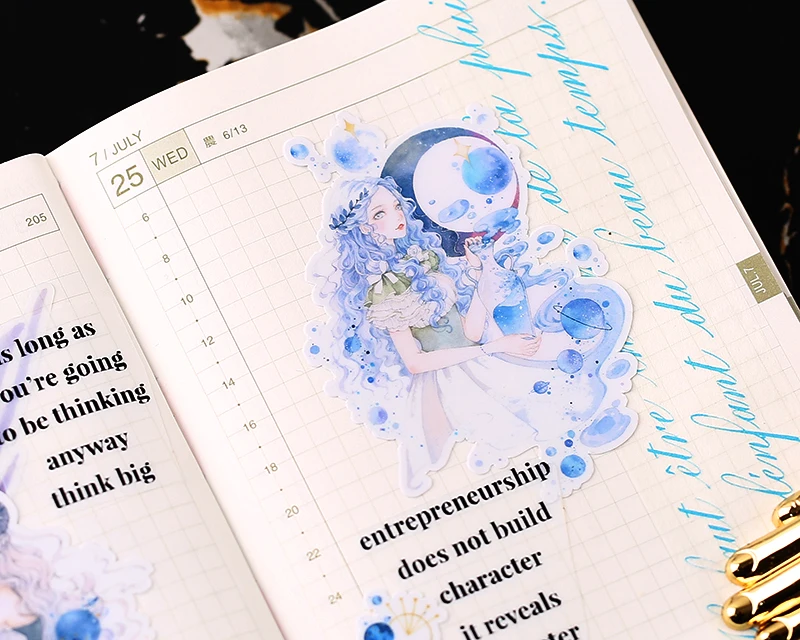 205
s long as
ou're going
o be thinking
anyway
think big
7 / JULY
25 WED 農 6/13
6
8
10
12
14
16
18
20
22
24
entrepreneurship
does not build
character
it reveals
JUL 7
de la plui
être du beau temps.
l'enfant